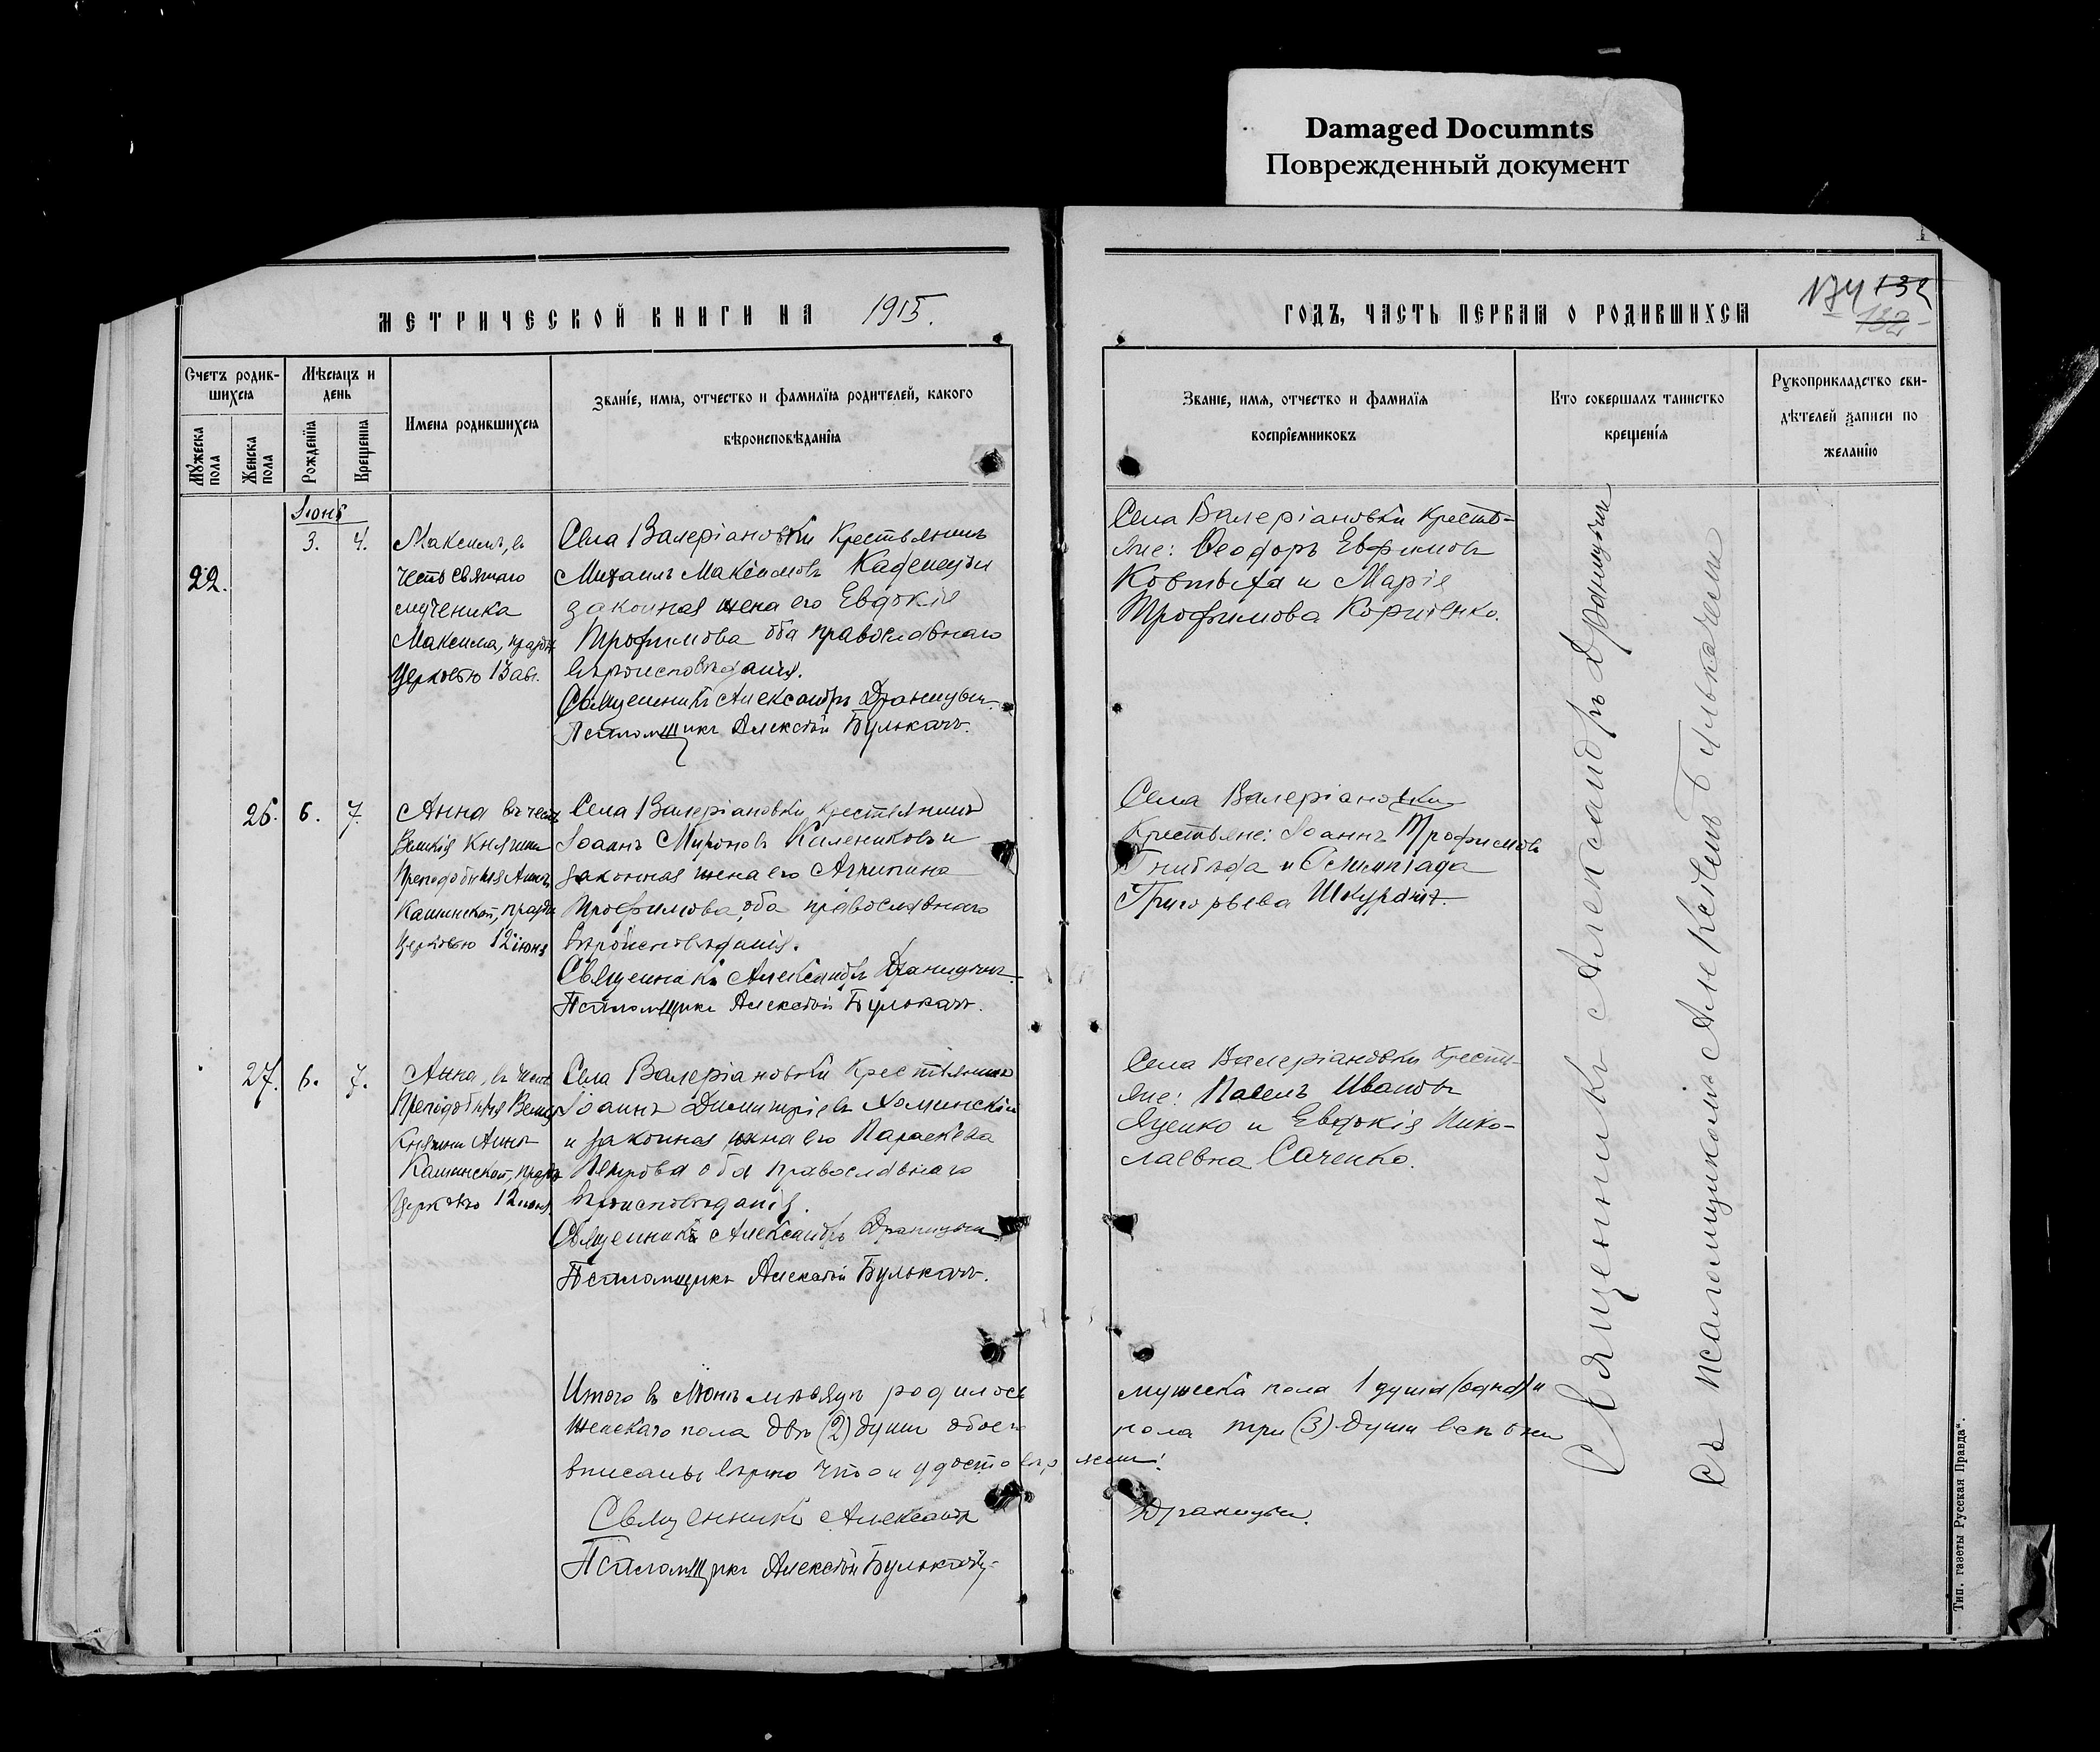 Damaged Documnts
Поврежденный документ
174 132
132
МЕТРИЧЕСКОЙ КНИГИ НА 1915.
ГОДЪ, ЧАСТЬ ПЕРВАЯ О РОДИВШИХСЯ
Счетъ родив-
шихся
Мужеска
пола
Женска
пола
Мѣсяцъ и
день
Рожденїя
Крещенїя
Имена родившихся
Званїе, имя, отчество и фамилїя родителей, какого
вѣроисповѣданїя
Званїе, имя, отчество и фамилїя
воспрїемниковъ
Кто совершалъ таинство
крещенїя
Рукоприкладство сви-
дѣтелей записи по
желанїю
Іюнь
22.
3. 4.
Максимъ, въ
честь святаго
мученика
Максима, празд.
Церковью 13 авг.
Села Валеріановки Крестьянинъ
Михаилъ Максимовъ
законная жена его Евдокія
Трофимова оба православнаго
вѣроисповѣданія.
Священникъ Александръ Драницынъ.
Псаломщикъ Алексѣй Булькачъ.
Села Валеріановки Кресть-
яне: Ѳеодоръ Евфимовъ
Ковтыха и Марія
Трофимова Корниенко.
26. 6. 7.
Анна въ честь
Великія Княгини
Преподобныя Анны
Кашинской, праздн
Церковью 12 іюня
Села Валеріановки крестьянинъ
Іоаннъ Мироновъ Калениковъ и
законная жена его Агрипина
Трофимова, оба православнаго
вѣроисповѣданія.
Священникъ Александръ Драницынъ.
Псаломщикъ Алексѣй Булькачъ.
Села Валеріановки
Крестьяне: Іоаннъ Трофимовъ
и Олимпіада
Григорьева
27. 6. 7.
Анна, въ честь
Преподобныя Велик
Княгини Анны
Кашинской, празд
Церковью 12 іюня.
Села Валеріановки Крестьянинъ
Іоаннъ Димитріевъ Хоминскій
и законная жена его Параскева
Петрова оба православнаго
вѣроисповѣданія.
Священникъ Александръ Драницынъ.
Псаломщикъ Алексѣй Булькачъ.
Села Валеріановки Кресть-
яне: Павелъ Ивановъ
Яценко и Евдокія Нико-
лаевна Саченко.
Священникъ Александръ Драницынъ
Съ псаломщикомъ Алексѣемъ Булькачемъ
Итого въ Іюнѣ мѣсяцѣ родилось мужеска пола 1 душа (одна) и
Женскаго пола двѣ (2) души обоего пола три (3) души всѣ они
вписаны вѣрно что и удостовѣряемъ:
Священникъ Александръ Драницынъ.
Псаломщикъ Алексѣй Булькачъ.
Тип. газеты Русская Правда".